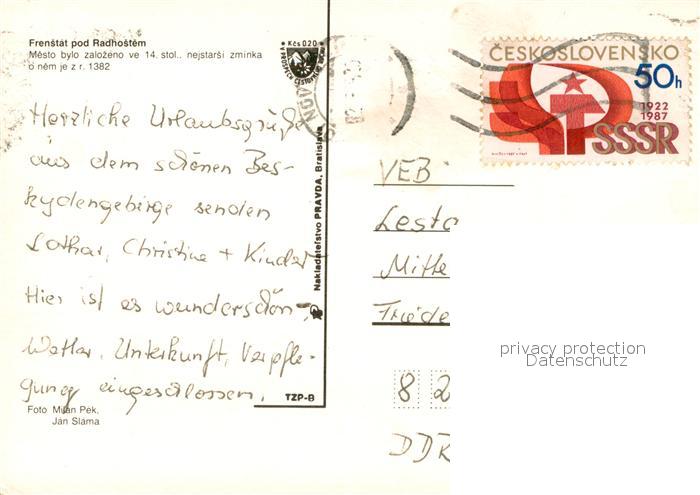 Frenštát pod Radhoštěm
Město bylo založeno ve 14. stol., nejstarší zmínka
o něm je z r. 1382
Kčs 020
ČESKOSLOVENSKO
50h
1922
1987
SSSR
Herzliche Urlaubsgrüße
aus dem schönen Bes-
kydengebirge senden
Lothar, Christine + Kinder
Hier ist es wunderschön,
Wetter, Unterkunft, Verpfle-
gung eingeschlossen.
Nakladateľstvo PRAVDA, Bratislava
TZP-B
Foto Milan Pek,
Ján Sláma
VEB
Mitte
Friede
82
DDR
privacy protection
Datenschutz